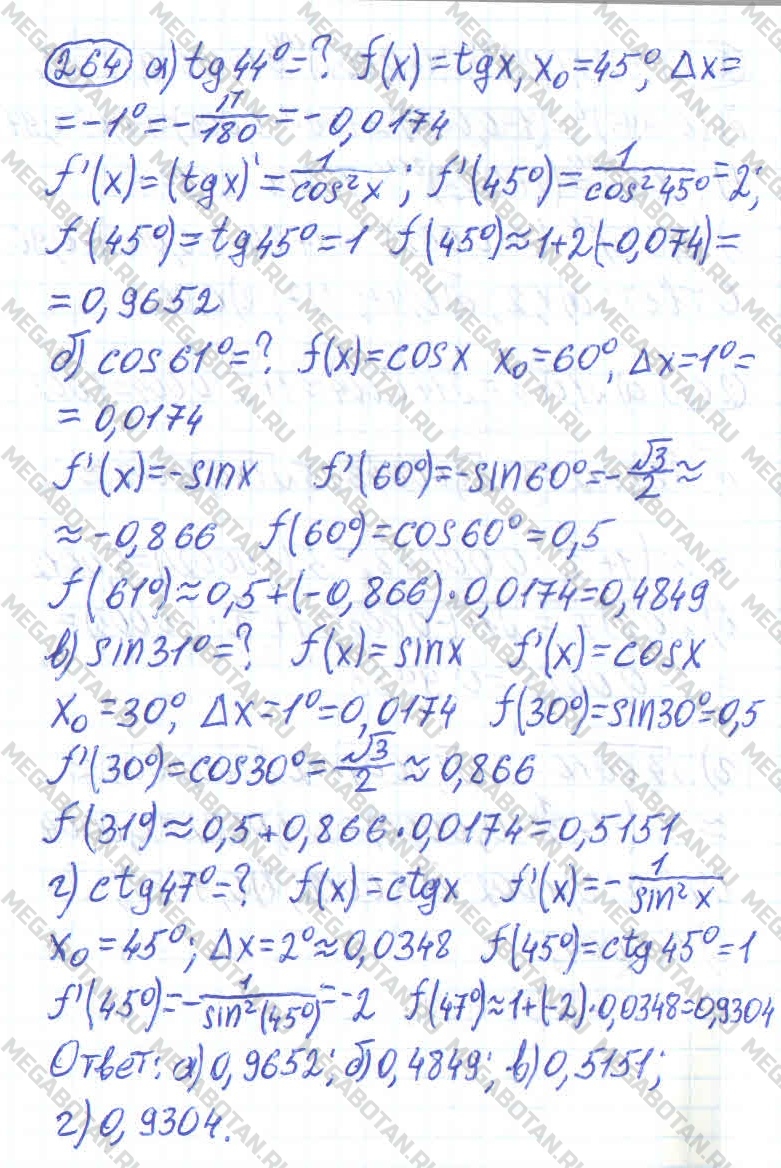 264 а) tg44°=? f(x)=tgx, x₀=45°, Δx=
=-1°=-π/180=-0,0174
f'(x)=(tgx)'=1/cos²x; f'(45°)=1/cos²45°=2;
f(45°)=tg45°=1 f(45°)≈1+2(-0,074)=
=0,9652
б) cos61°=? f(x)=cosx x₀=60°, Δx=1°=
=0,0174
f'(x)=-sinx f'(60°)=-sin60°=-√3/2≈
≈-0,866 f(60°)=cos60°=0,5
f(61°)≈0,5+(-0,866)·0,0174=0,4849
в) sin31°=? f(x)=sinx f'(x)=cosx
x₀=30°, Δx=1°=0,0174 f(30°)=sin30°=0,5
f'(30°)=cos30°=√3/2≈0,866
f(31°)≈0,5+0,866·0,0174=0,5151
г) ctg47°=? f(x)=ctgx f'(x)=-1/sin²x
x₀=45°; Δx=2°≈0,0348 f(45°)=ctg45°=1
f'(45°)=-1/sin²(45°)=-2 f(47°)≈1+(-2)·0,0348=0,9304
Ответ: а) 0,9652; б) 0,4849; в) 0,5151;
г) 0,9304.
MEGABOTAN.RU